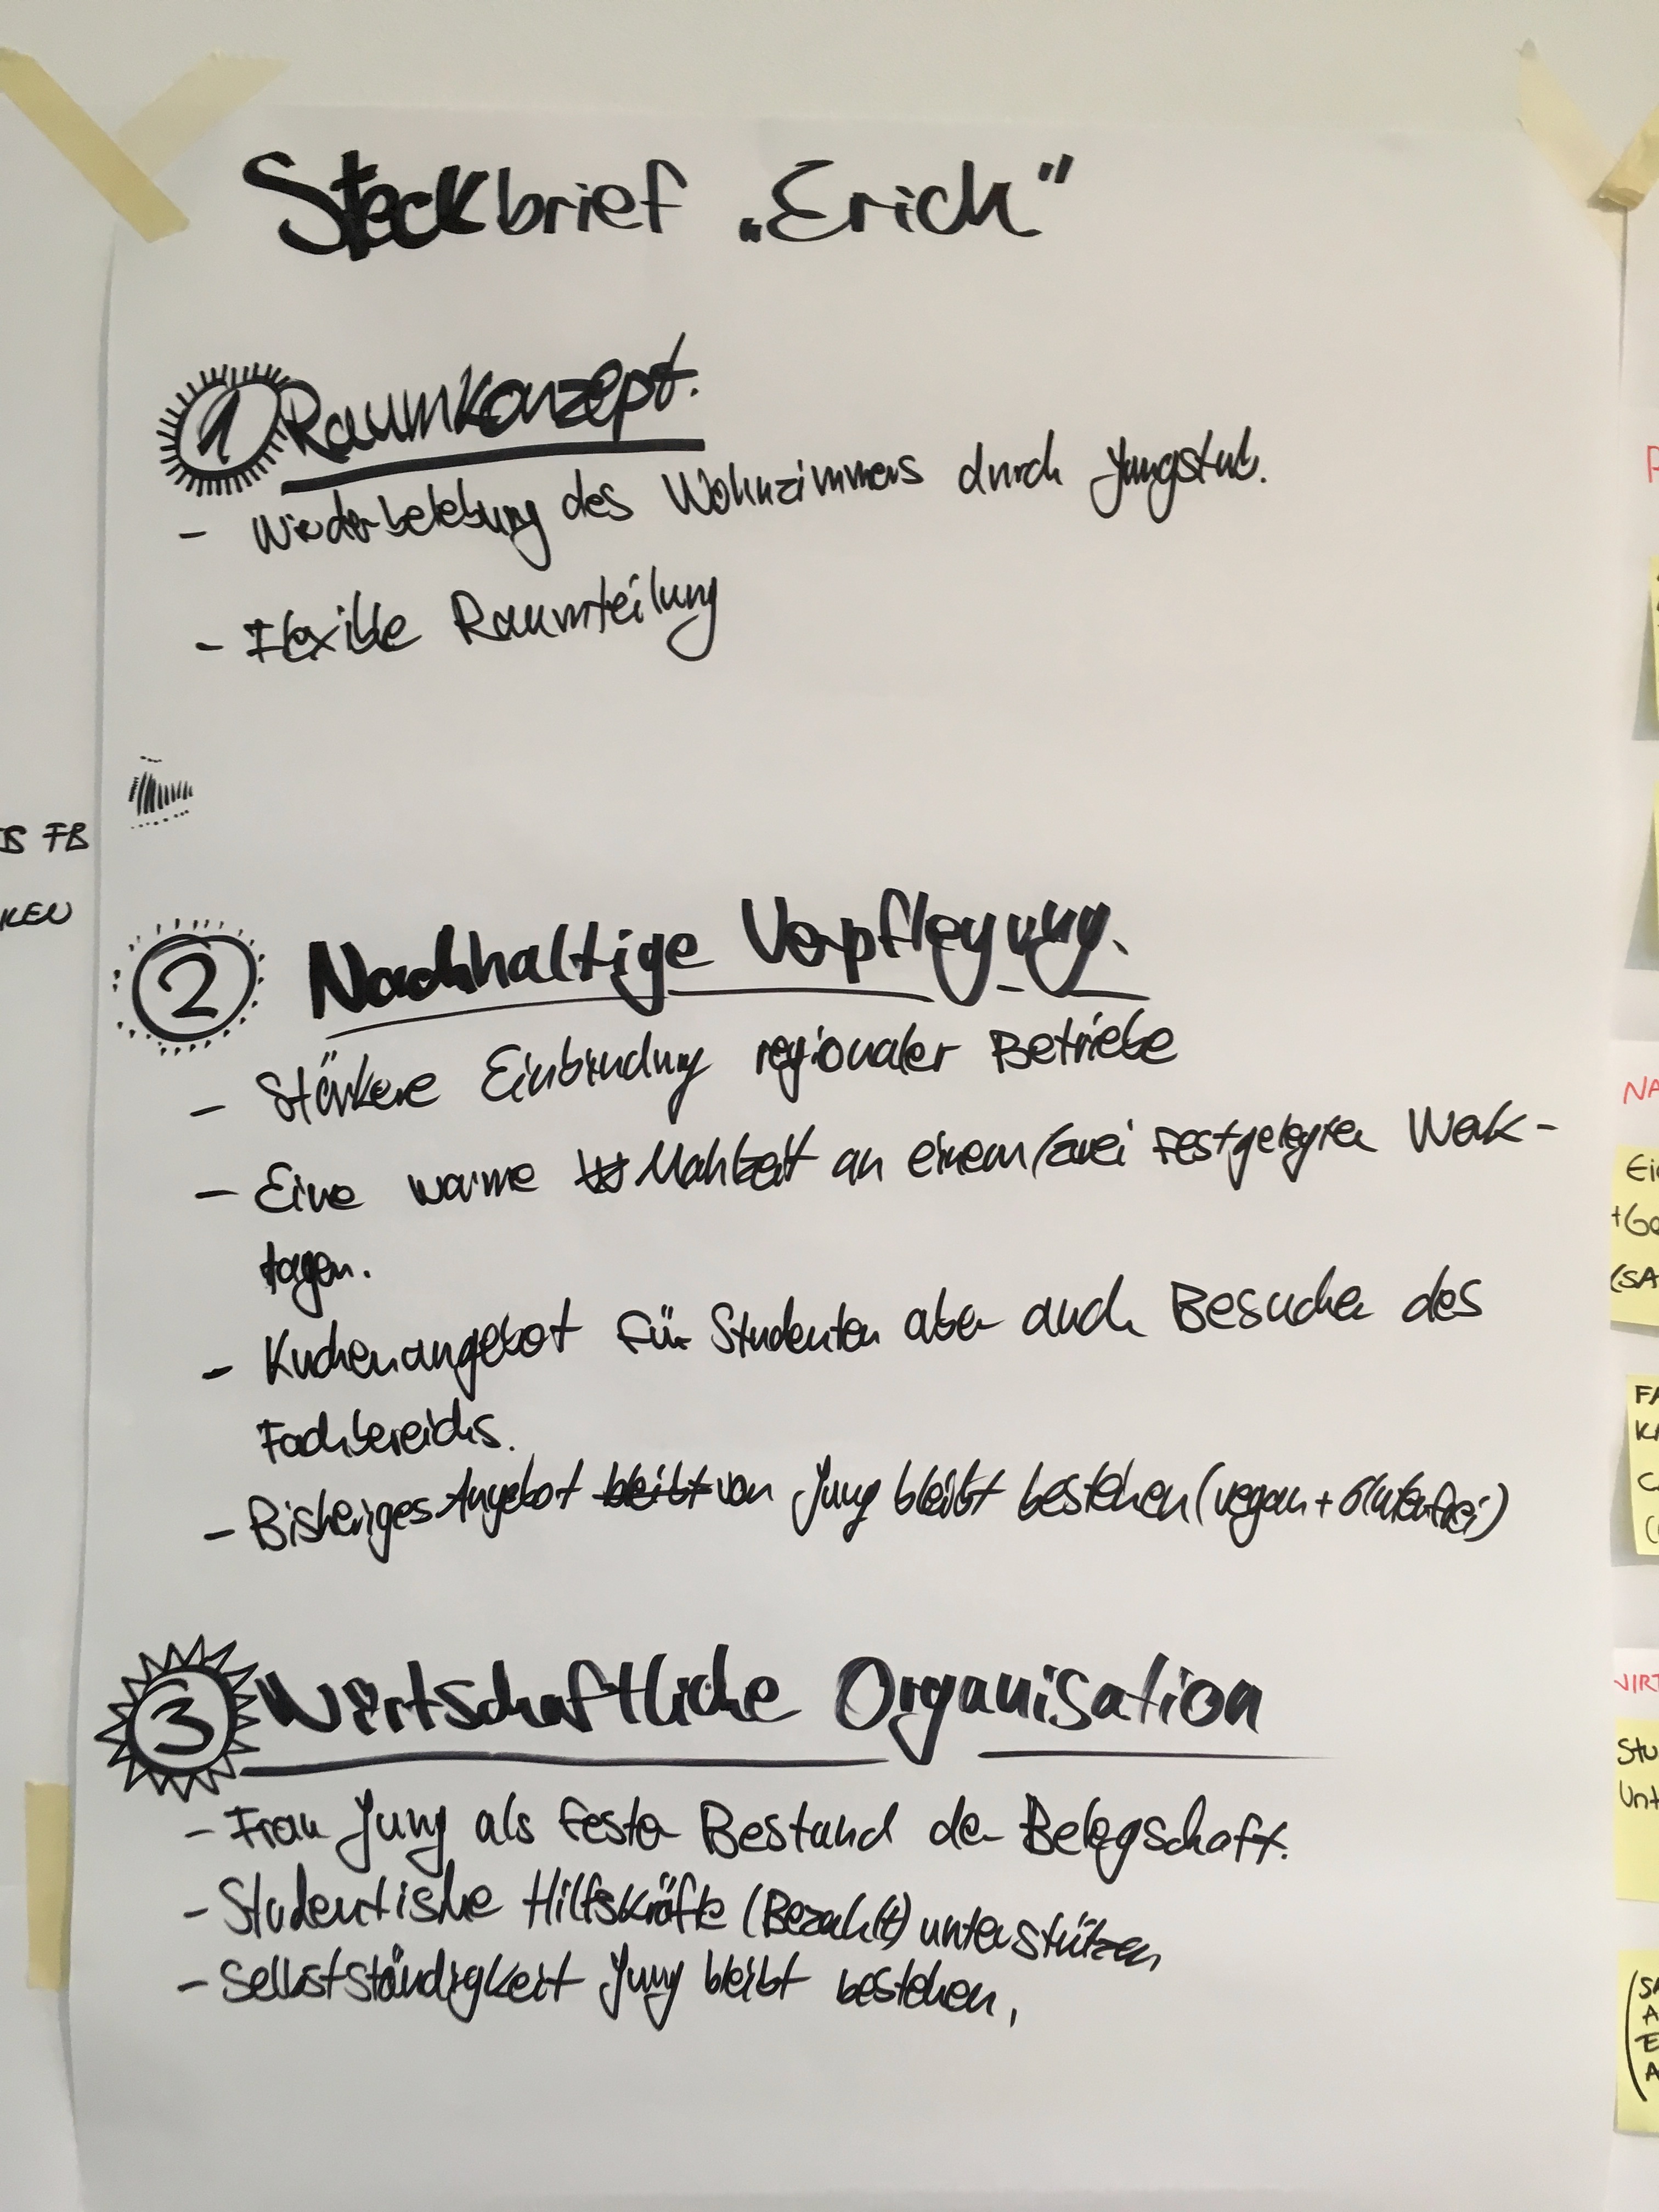 Steckbrief „Erich"
1 Raumkonzept.
- Wiederbelebung des Wohnzimmers durch Jungstub.
- Flexible Raumteilung
S FB
KEN
2 Nachhaltige Verpflegung.
- Stärkere Einbindung regionaler Betriebe
- Eine warme Mahlzeit an einem/zwei festgelegten Werk-
tagen.
- Kuchenangebot für Studenten aber auch Besucher des
Fachbereichs.
- Bisheriges Angebot bleibt von Jung bleibt bestehen (vegan + Glutenfrei)
3 Wirtschaftliche Organisation
- Frau Jung als fester Bestand der Belegschaft.
- Studentische Hilfskräfte (Bezahlt) unterstützen
- Selbstständigkeit Jung bleibt bestehen,
NA
Ei
+Go
(SA
FA
KA
C
WIRT
Stu
Unt
(SA
A
E
A